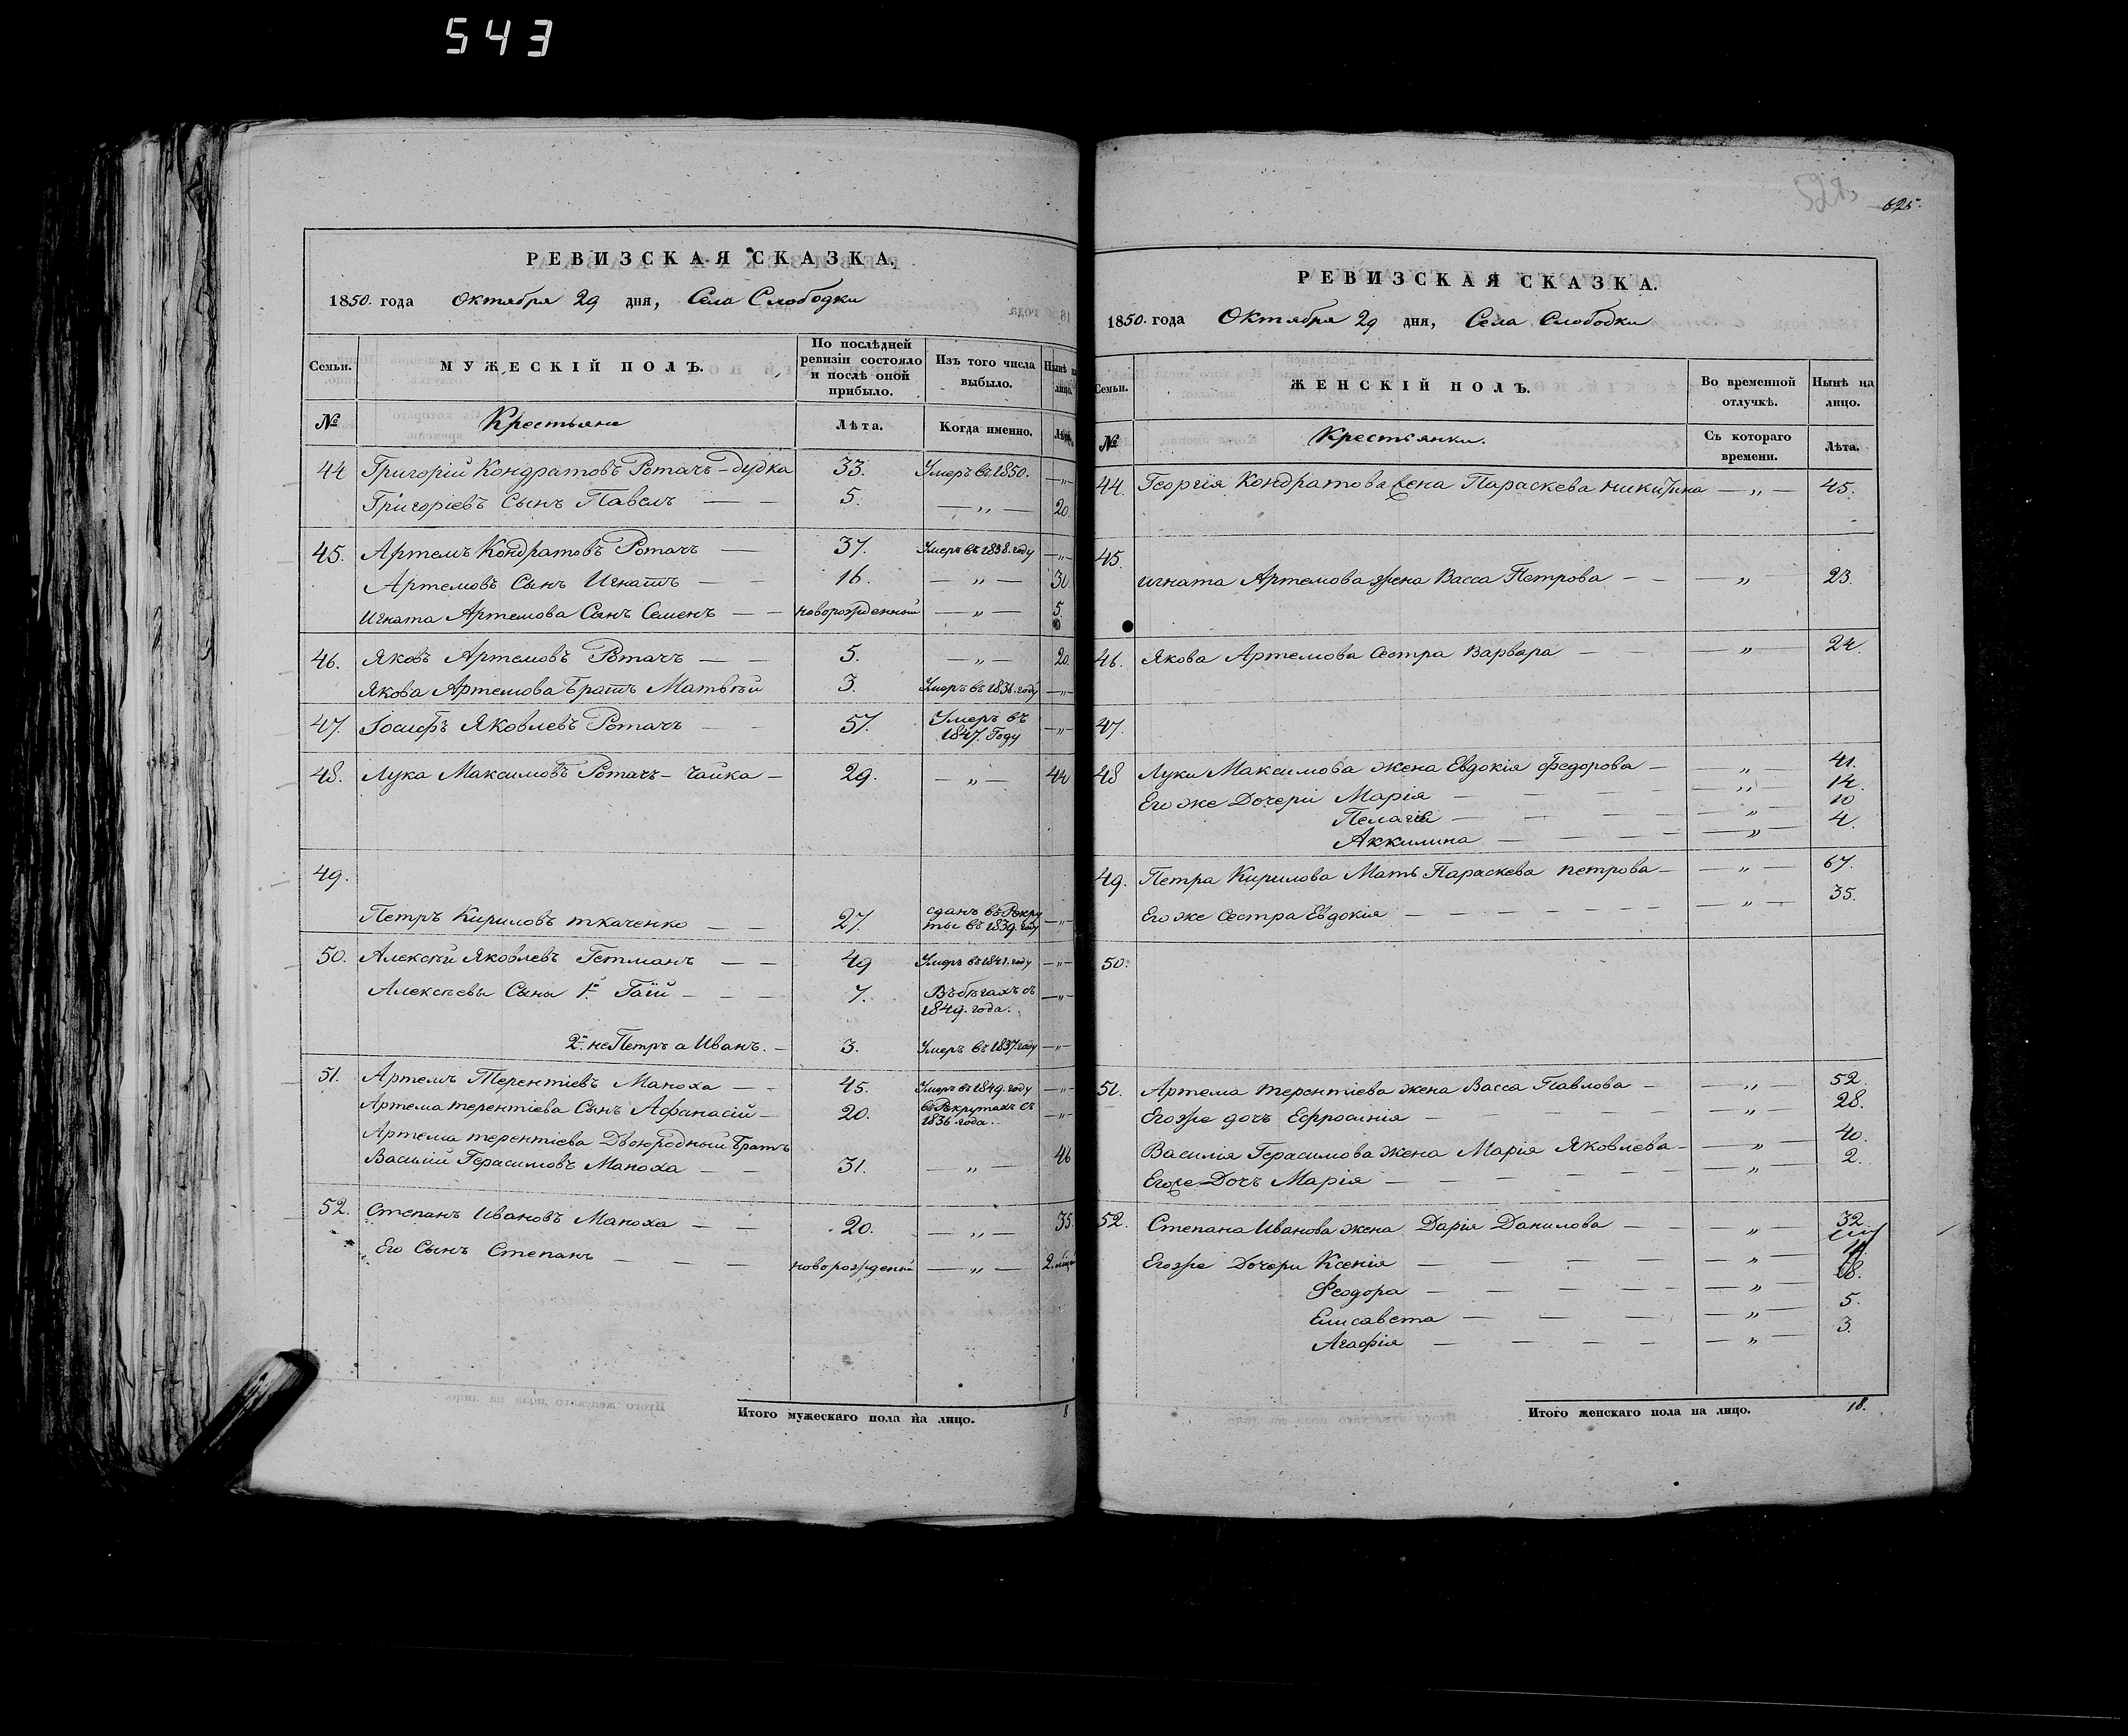 543
РЕВИЗСКАЯ СКАЗКА.
1850. года Октября 29 дня, Села Слободки
Семьи. МУЖЕСКІЙ ПОЛЪ. По послѣдней ревизіи состояло и послѣ оной прибыло. Изъ того числа выбыло. Нынѣ на лицо.
№ Крестьяне Лѣта. Когда именно. Лѣта.
44 Григорій Кондратовъ Ротачъ - дудка 33. Умеръ въ 1850. — „ —
Григоріевъ Сынъ Павелъ — — 5. — „ — 20
45. Артемъ Кондратовъ Ротачъ — 37. Умеръ въ 1838. году — „ —
Артемовъ Сынъ Игнатъ — — 16. — „ — 31
Игната Артемова Сынъ Семенъ — — новорожденный — „ — 5
46. Яковъ Артемовъ Ротачъ — — 5. — „ — 20.
Якова Артемова братъ Матвѣй 3. Умеръ въ 1836. году — „ —
47. Іосифъ Яковлевъ Ротачъ — — 57. Умеръ въ 1847. Году — „ —
48. Лука Максимовъ Ротачъ - чайка — 29. — „ — 44
49.
Петръ Кириловъ ткаченко — — 27. сданъ въ Рекруты въ 1839. году — „ —
50. Алексѣй Яковлевъ Гетманъ — — 49 Умеръ въ 1841. году — „ —
Алексѣевы Сыны 1й Гаій — — — 7. Въ бѣгахъ съ 1849. года. — „ —
2й не Петръ а Иванъ. — 3. Умеръ въ 1837. году — „ —
51. Артемъ Терентіевъ Маноха — — 45. Умеръ въ 1849. году — „ —
Артема терентіева Сынъ Афанасій — 20. въ Рекрутахъ съ 1836 года. — „ —
Артема терентіева Двоюродный братъ
Василій Герасимовъ Маноха — — 31. — „ — 46
52. Степанъ Ивановъ Маноха — — 20. — „ — 35.
Его Сынъ Степанъ — — — новорожденій — „ — 2.
Итого мужескаго пола на лицо. 8
525.
РЕВИЗСКАЯ СКАЗКА.
1850. года Октября 29 дня, Села Слободки
Семьи. ЖЕНСКІЙ ПОЛЪ. Во временной отлучкѣ. Нынѣ на лицо.
№ Крестьянки. Съ котораго времени. Лѣта.
44. Георгія Кондратова жена Параскева никитина — „ — 45.
45.
игната Артемова жена Васса Петрова — — — „ 23.
46. Якова Артемова сестра Варвара — — — „ — 24.
47.
48 Луки Максимова жена Евдокія федорова — „ — 41.
Его же Дочери Марія — — — — „ — 14.
Пелагія — — — — „ — 10
Аккилина — — — — „ — 4.
49. Петра Кирилова Мать Параскева петрова — — „ — 67.
Его же Сестра Евдокія — — — — „ — 35.
50.
51. Артема терентіева жена Васса Павлова — „ — 52.
Егоже дочъ Ефросинія — — — — „ — 28.
Василія Герасимова жена Марія Яковлева — — „ — 40.
Егоже Дочъ Марія — — — — „ — 2.
52. Степана Иванова жена Дарія Данилова — — „ 32
Егоже Дочери Ксенія — — — — „ —
Феодора — — — — „ —
Елисавета — — — — „ — 5.
Агафія — — — — „ — 3.
Итого женскаго пола на лицо. 18.